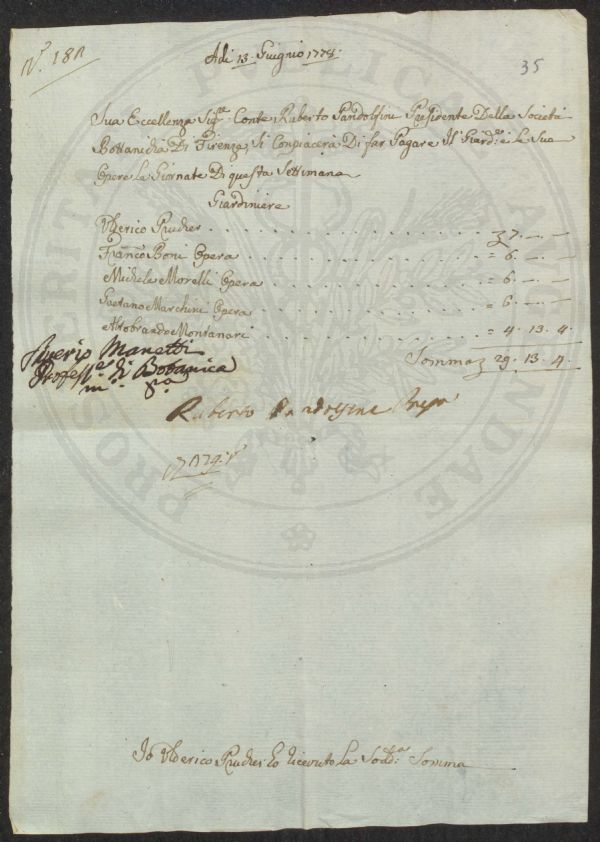 N.o 181
Adi 13. Giugnio 1778.
35
Sua Eccellenza Sig.re Conte, Ruberto Pandolfini Presidente Della Societá
Bottanicha Di Firenza, Si Conpiacerá Di far Pagare Il Giard.e e Le Sua
Opere Le Giornate Di questa Settimana
Giardiniere
Ulderico Prucher . . . 7. — —
Franco Boni Opera . . . = 6. — —
Michele Morelli Opera . . . = 6. — —
Gaetano Marchini Opera . . . = 6. — —
Aldobrando Montanari . . . = 4. 13. 4
Somma 29. 13. 4
Saverio Manetti
Profess.e di Botanica
m.o p.a
Ruberto Pandolfini Presid.
Io Ulderico Prucher ho ricevuto La Sodd.a Somma
PROSPERITATI PUBLICAE AUGENDAE